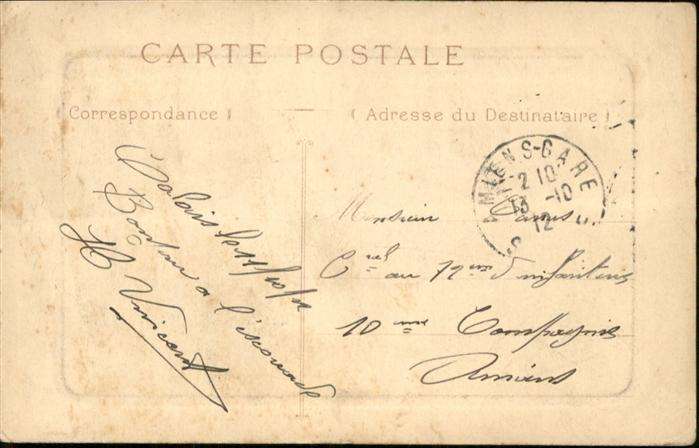 CARTE POSTALE
Correspondance
Adresse du Destinataire
Calais le 11/10/12
Bonjour a l'escouade
H Vincent
AMIENS-GARE
12 10
13 -10
12
Monsieur
Cral au 72me d'infanterie
10me Compagnie
Amiens